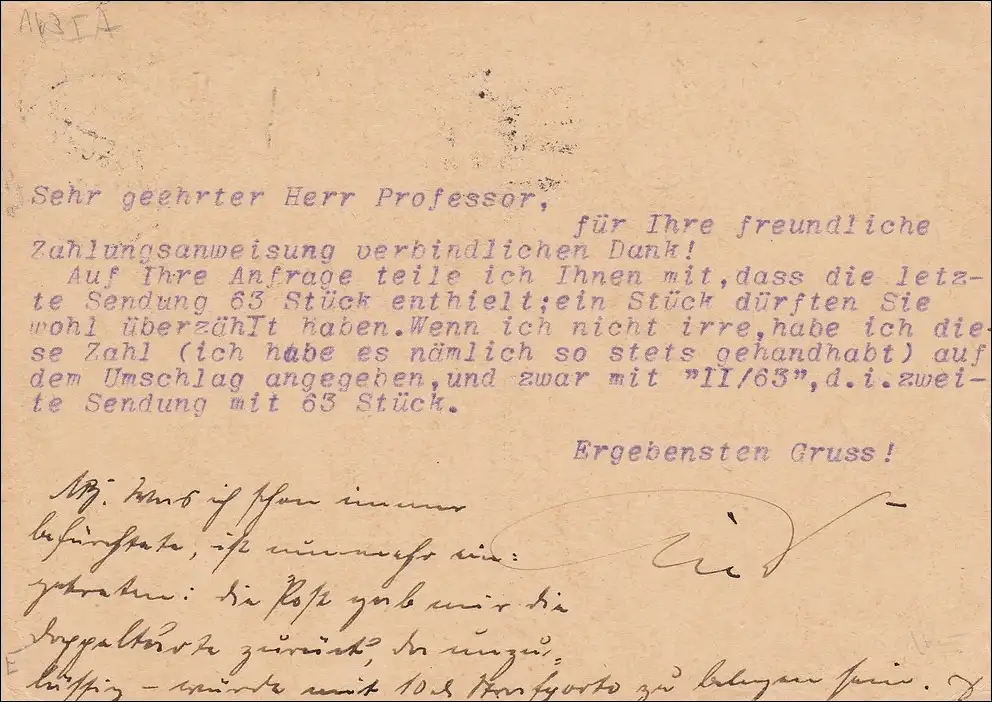 Sehr geehrter Herr Professor,
für Ihre freundliche
Zahlungsanweisung verbindlichen Dank!
Auf Ihre Anfrage teile ich Ihnen mit,dass die letz-
te Sendung 63 Stück enthielt;ein Stück dürften Sie
wohl überzählt haben.Wenn ich nicht irre,habe ich die-
se Zahl (ich habe es nämlich so stets gehandhabt) auf
dem Umschlag angegeben,und zwar mit "II/63",d.i.zwei-
te Sendung mit 63 Stück.
Ergebensten Gruss!
NB. Was ich schon immer
befürchtete, ist nunmehr ein:
getreten: die Post gab mir die
Doppelkarte zurück, da unzu:
lässig – würde mit 10 d Strafporto zu belegen sein.